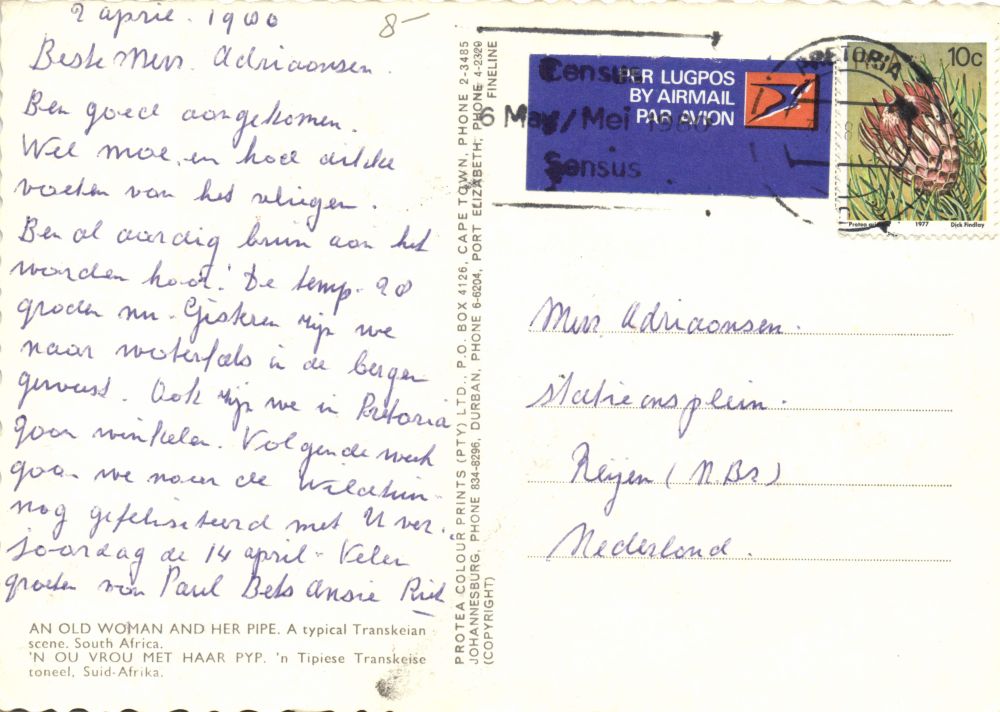 2 april. 1980
8-
Beste Mevr. Adriaansen.
Ben goed aangekomen.
Wel moe, en heel dikke
voeten van het vliegen.
Ben al aardig bruin aan het
worden hoor! De temp. 28
graden nu. Gisteren zijn we
naar waterfals in de bergen
geweest. Ook zijn we in Pretoria
gaan winkelen. Volgende week
gaan we naar de Wildtuin
nog gefeliciteerd met U ver.
jaardag de 14 april. Velen
groeten van Paul Bets Ansie Riet
AN OLD WOMAN AND HER PIPE. A typical Transkeian
scene. South Africa.
'N OU VROU MET HAAR PYP. 'n Tipiese Transkeise
toneel, Suid-Afrika.
PROTEA COLOUR PRINTS (PTY) LTD., P.O. BOX 4126, CAPE TOWN, PHONE 2-3485
JOHANNESBURG, PHONE 834-8296, DURBAN, PHONE 6-6204, PORT ELIZABETH, PHONE 4-2329
(COPYRIGHT) FINELINE
PER LUGPOS
BY AIRMAIL
PAR AVION
Census
6 May/Mei 1980
Sensus
PRETORIA
10c
1977 Dick Findlay
Mevr Adriaansen.
Stationsplein.
Reijen (N.Br)
Nederland.